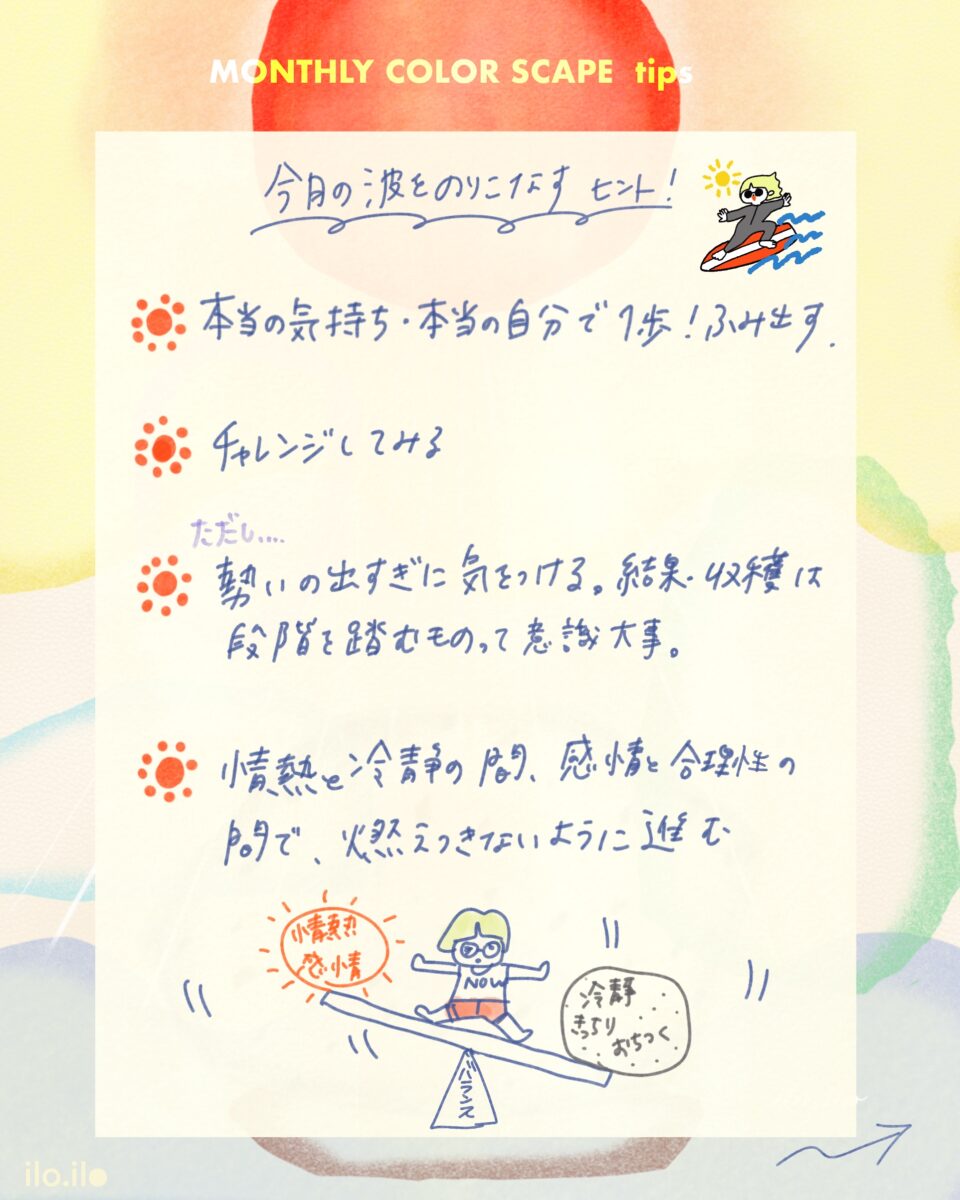 MONTHLY COLOR SCAPE tips
今月の波をのりこなす ヒント!
本当の気持ち・本当の自分で1歩!ふみ出す.
チャレンジしてみる
ただし....
勢いの出すぎに気をつける。結果・収穫は
段階を踏むものって意識大事。
情熱と冷静の間、感情と合理性の
間で、燃えつきないように進む
情熱
感情
NOW
冷静
きっちり
おちつく
バランス
ilo.ilo